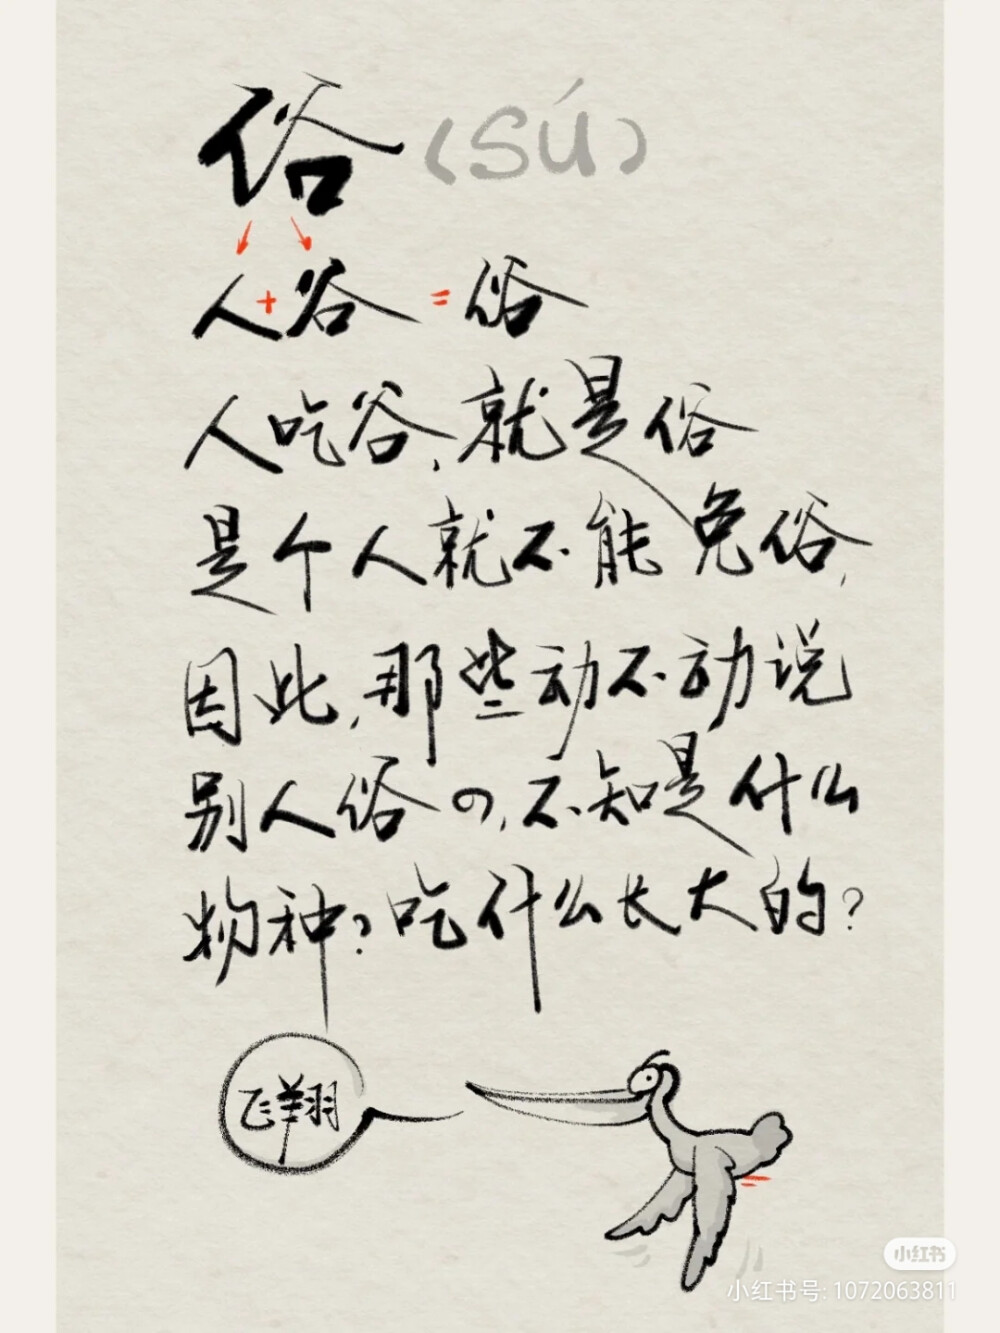 俗（sú）
人+谷=俗
人吃谷,就是俗
是个人就不能免俗,
因此,那些动不动说
别人俗的,不知是什么
物种?吃什么长大的?
飞翔
小红书
小红书号: 1072063811